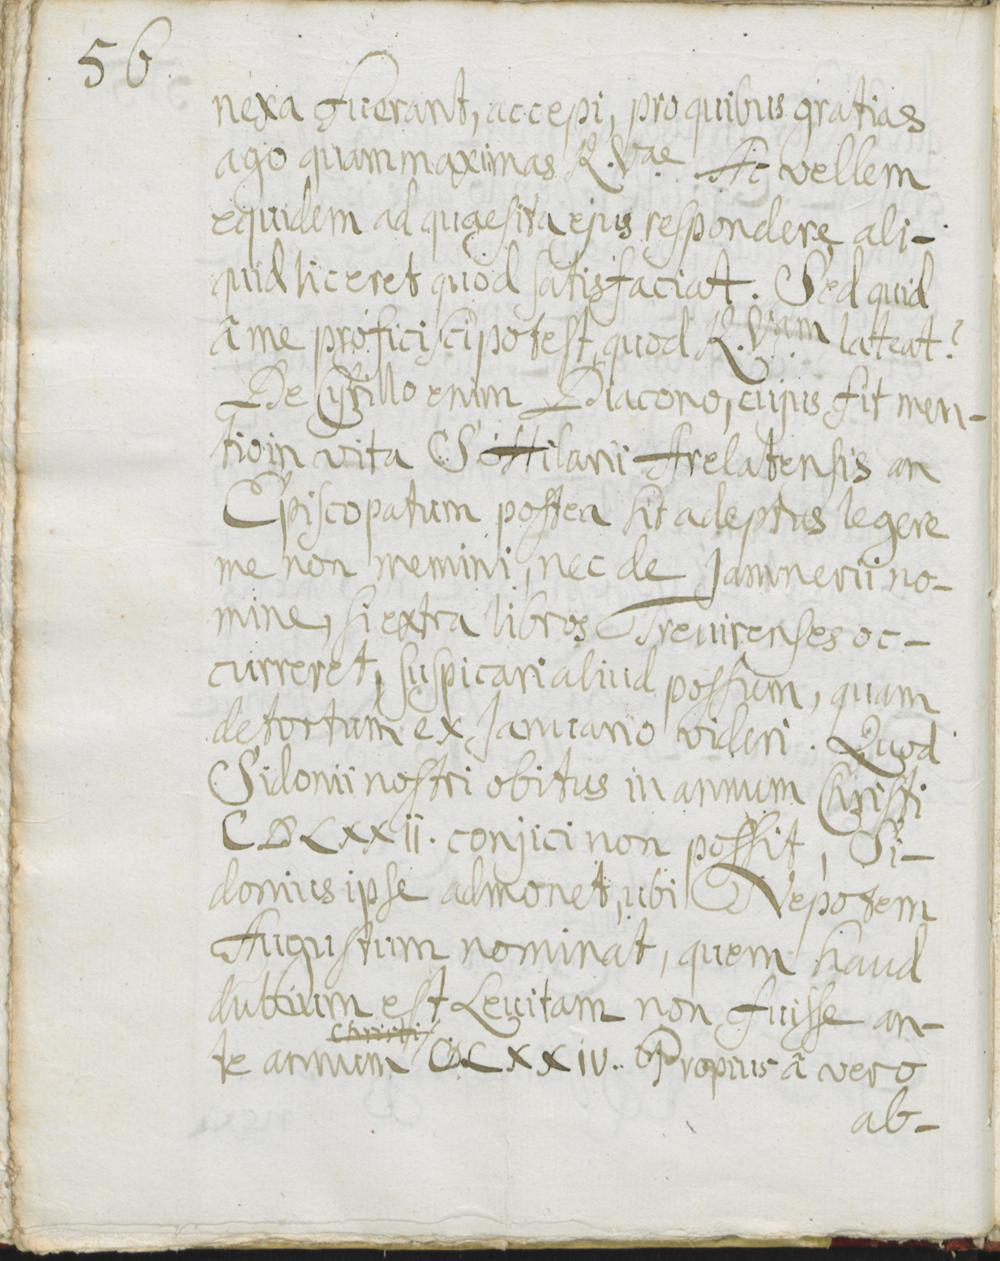 56
nexa fuerant, accepi, pro quibus gratias
ago quam maximas R. Vae. Ac vellem
equidem ad quaesita ejus respondere ali-
quid liceret quod satisfaciat. Sed quid
â me proficisci potest, quod R. Vam lateat?
De Cyrillo enim Diacono, cujus fit men-
tio in vita S. Hilarii Arelatensis an
Episcopatum postea sit adeptus legere
me non memini, nec de Jamnerii no-
mine, si extra libros Trevirenses oc-
curreret, suspicari aliud possum, quam
detortum ex Januario videri. Quod
Sidonii nostri obitus in annum Christi
CDLXXII. conjici non possit, Si-
donius ipse admonet, ubi Nepotem
Augustum nominat, quem haud
dubium est Levitam non fuisse an-
Christi
te annum CDLXXIV. Propius â vero
ab-